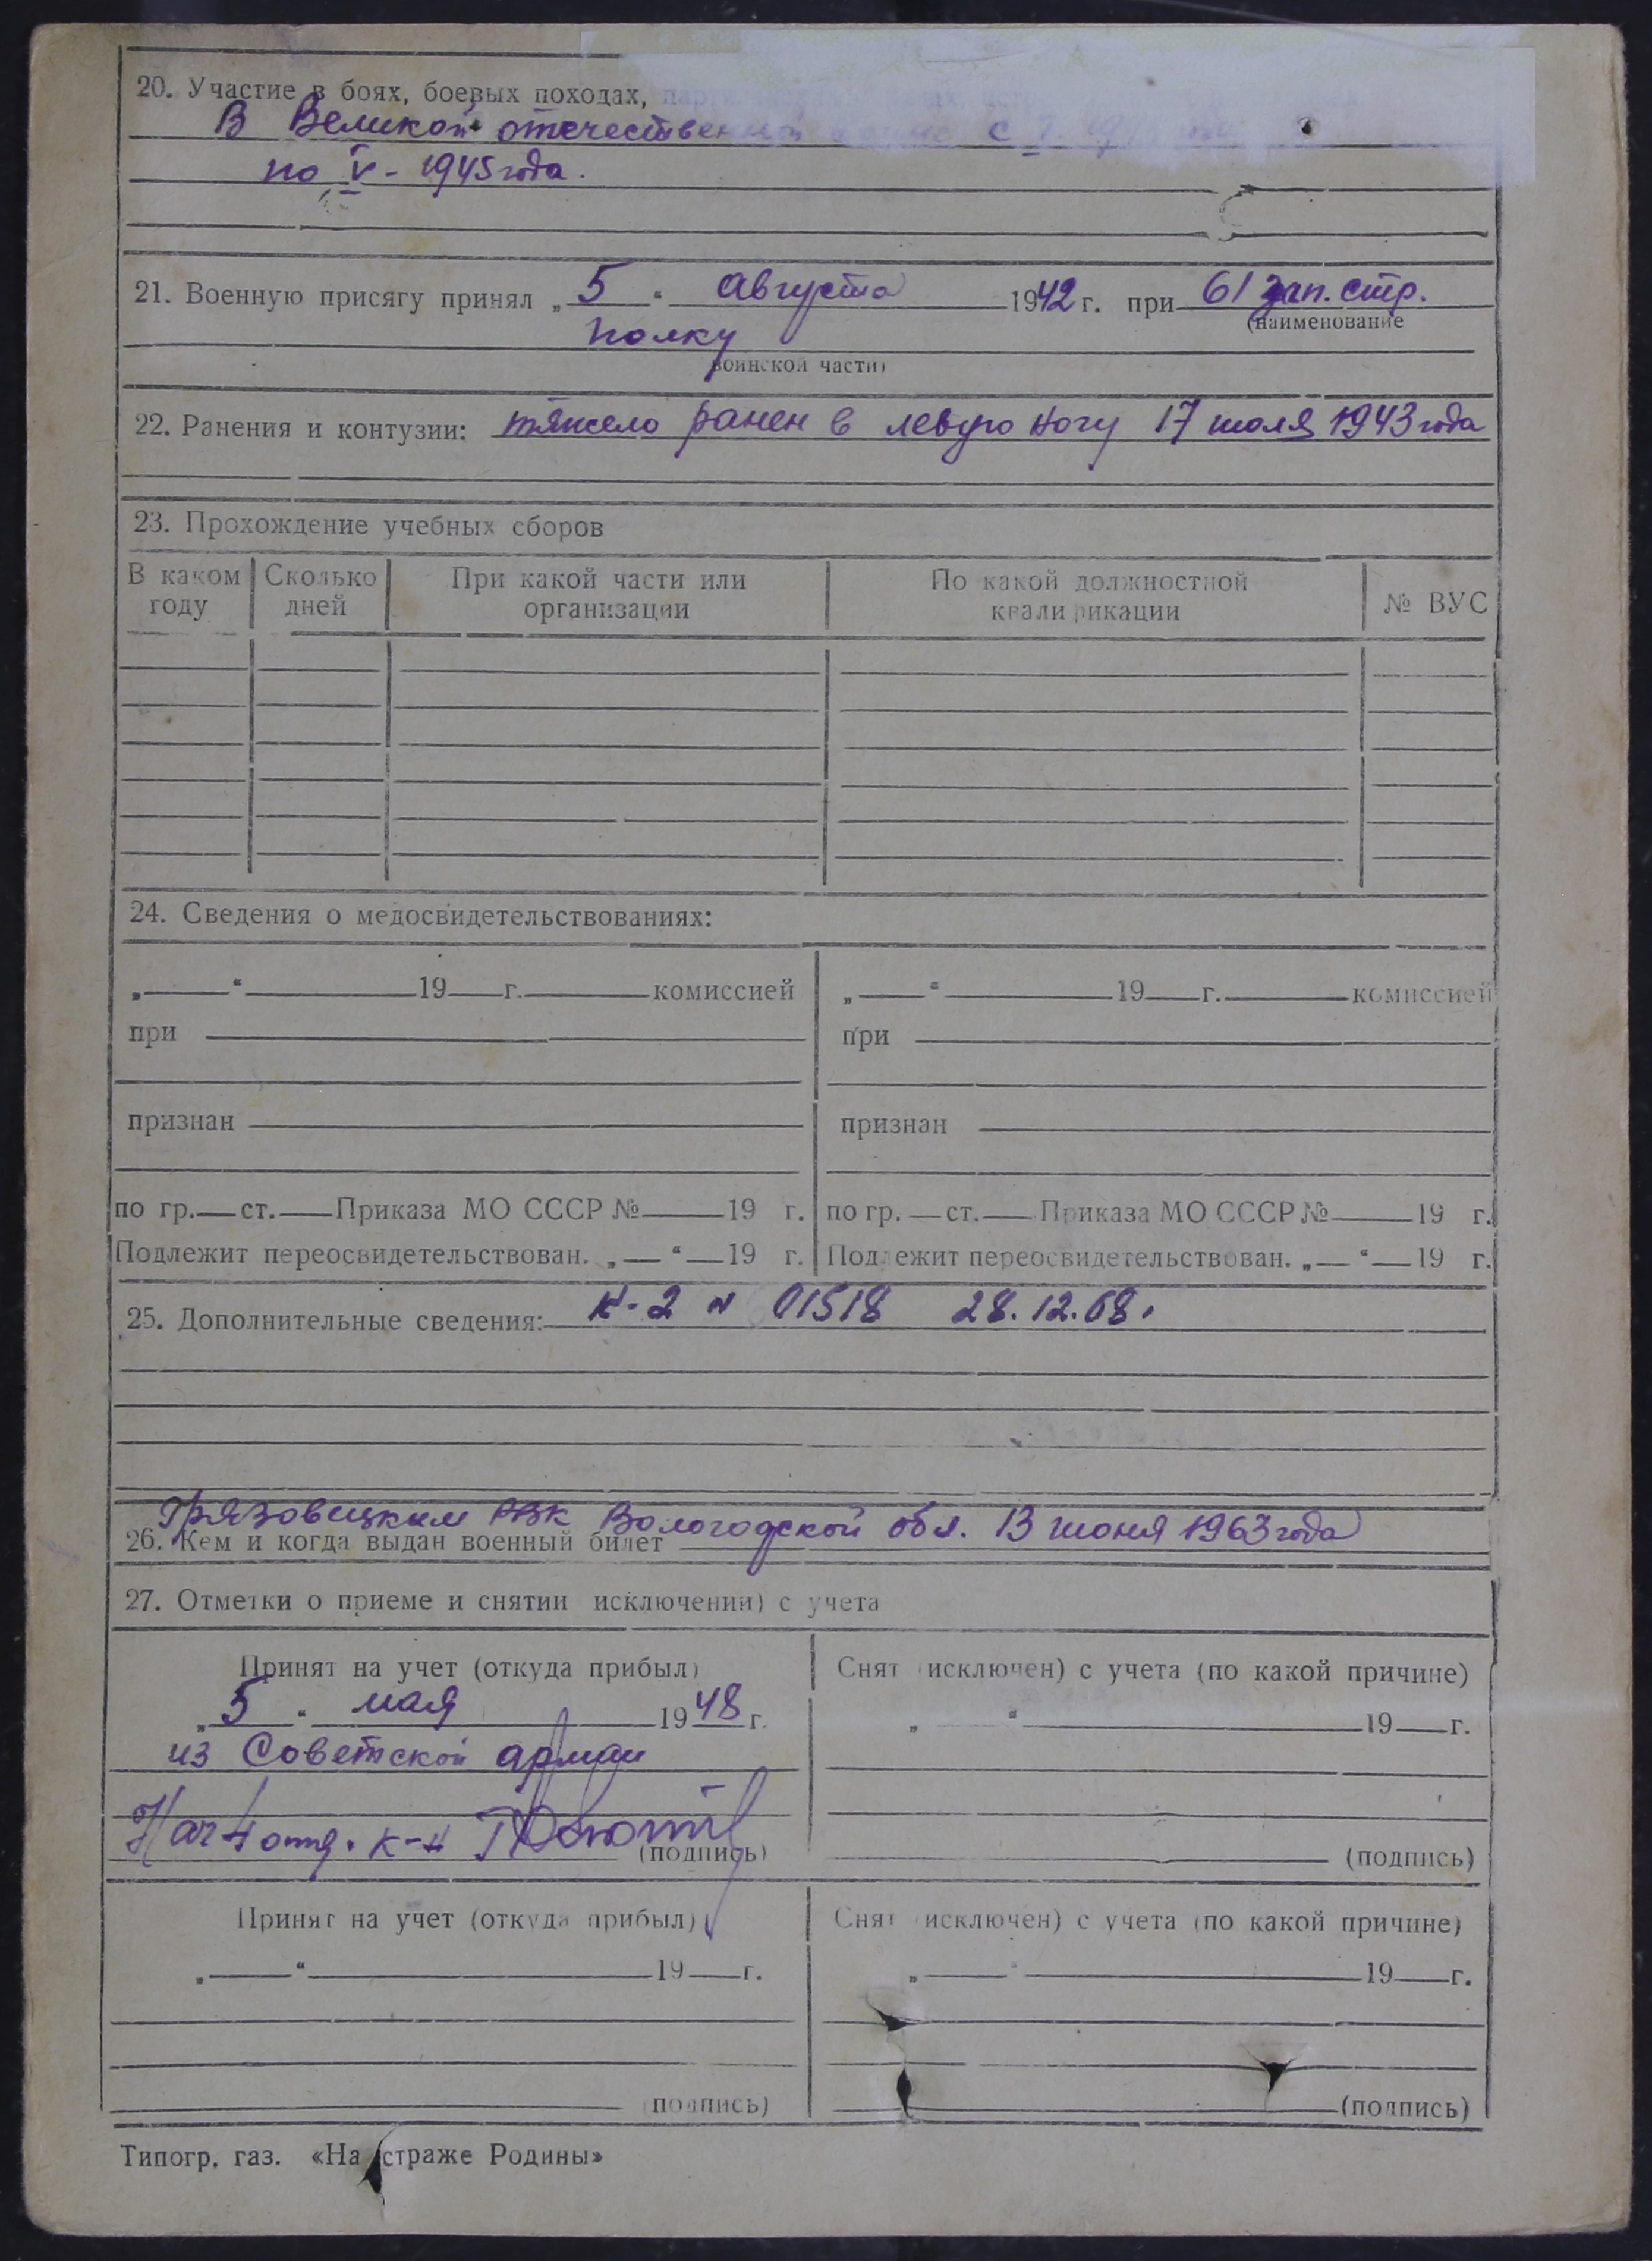 20. Участие в боях, боевых походах,
В Великой отечественной с
по V - 1945 года.
21. Военную присягу принял „ 5 “ августа 1942 г. при 61 зап. стр.
(наименование
полку
воинской части)
22. Ранения и контузии: тяжело ранен в левую ногу 17 июля 1943 года
23. Прохождение учебных сборов
В каком году Сколько дней При какой части или организации По какой должностной квалификации № ВУС
24. Сведения о медосвидетельствованиях:
„ “ 19 г. комиссией „ “ 19 г. комиссией
при при
признан признан
по гр. ст. Приказа МО СССР № 19 г. по гр. ст. Приказа МО СССР № 19 г.
Подлежит переосвидетельствован. „ “ 19 г. Подлежит переосвидетельствован. „ “ 19 г.
25. Дополнительные сведения: К-2 № 01518 28.12.68.
Грязовецким РВК Вологодской обл. 13 июня 1963 года
26. Кем и когда выдан военный билет
27. Отметки о приеме и снятии исключении) с учета
Принят на учет (откуда прибыл) Снят (исключен) с учета (по какой причине)
„ 5 “ мая 1948 г. „ “ 19 г.
из Советской армии
Нач 4 отд. к-н
(подпись) (подпись)
Принят на учет (откуда прибыл) Снят (исключен) с учета (по какой причине)
„ “ 19 г. „ “ 19 г.
(подпись) (подпись)
Типогр. газ. «На страже Родины»